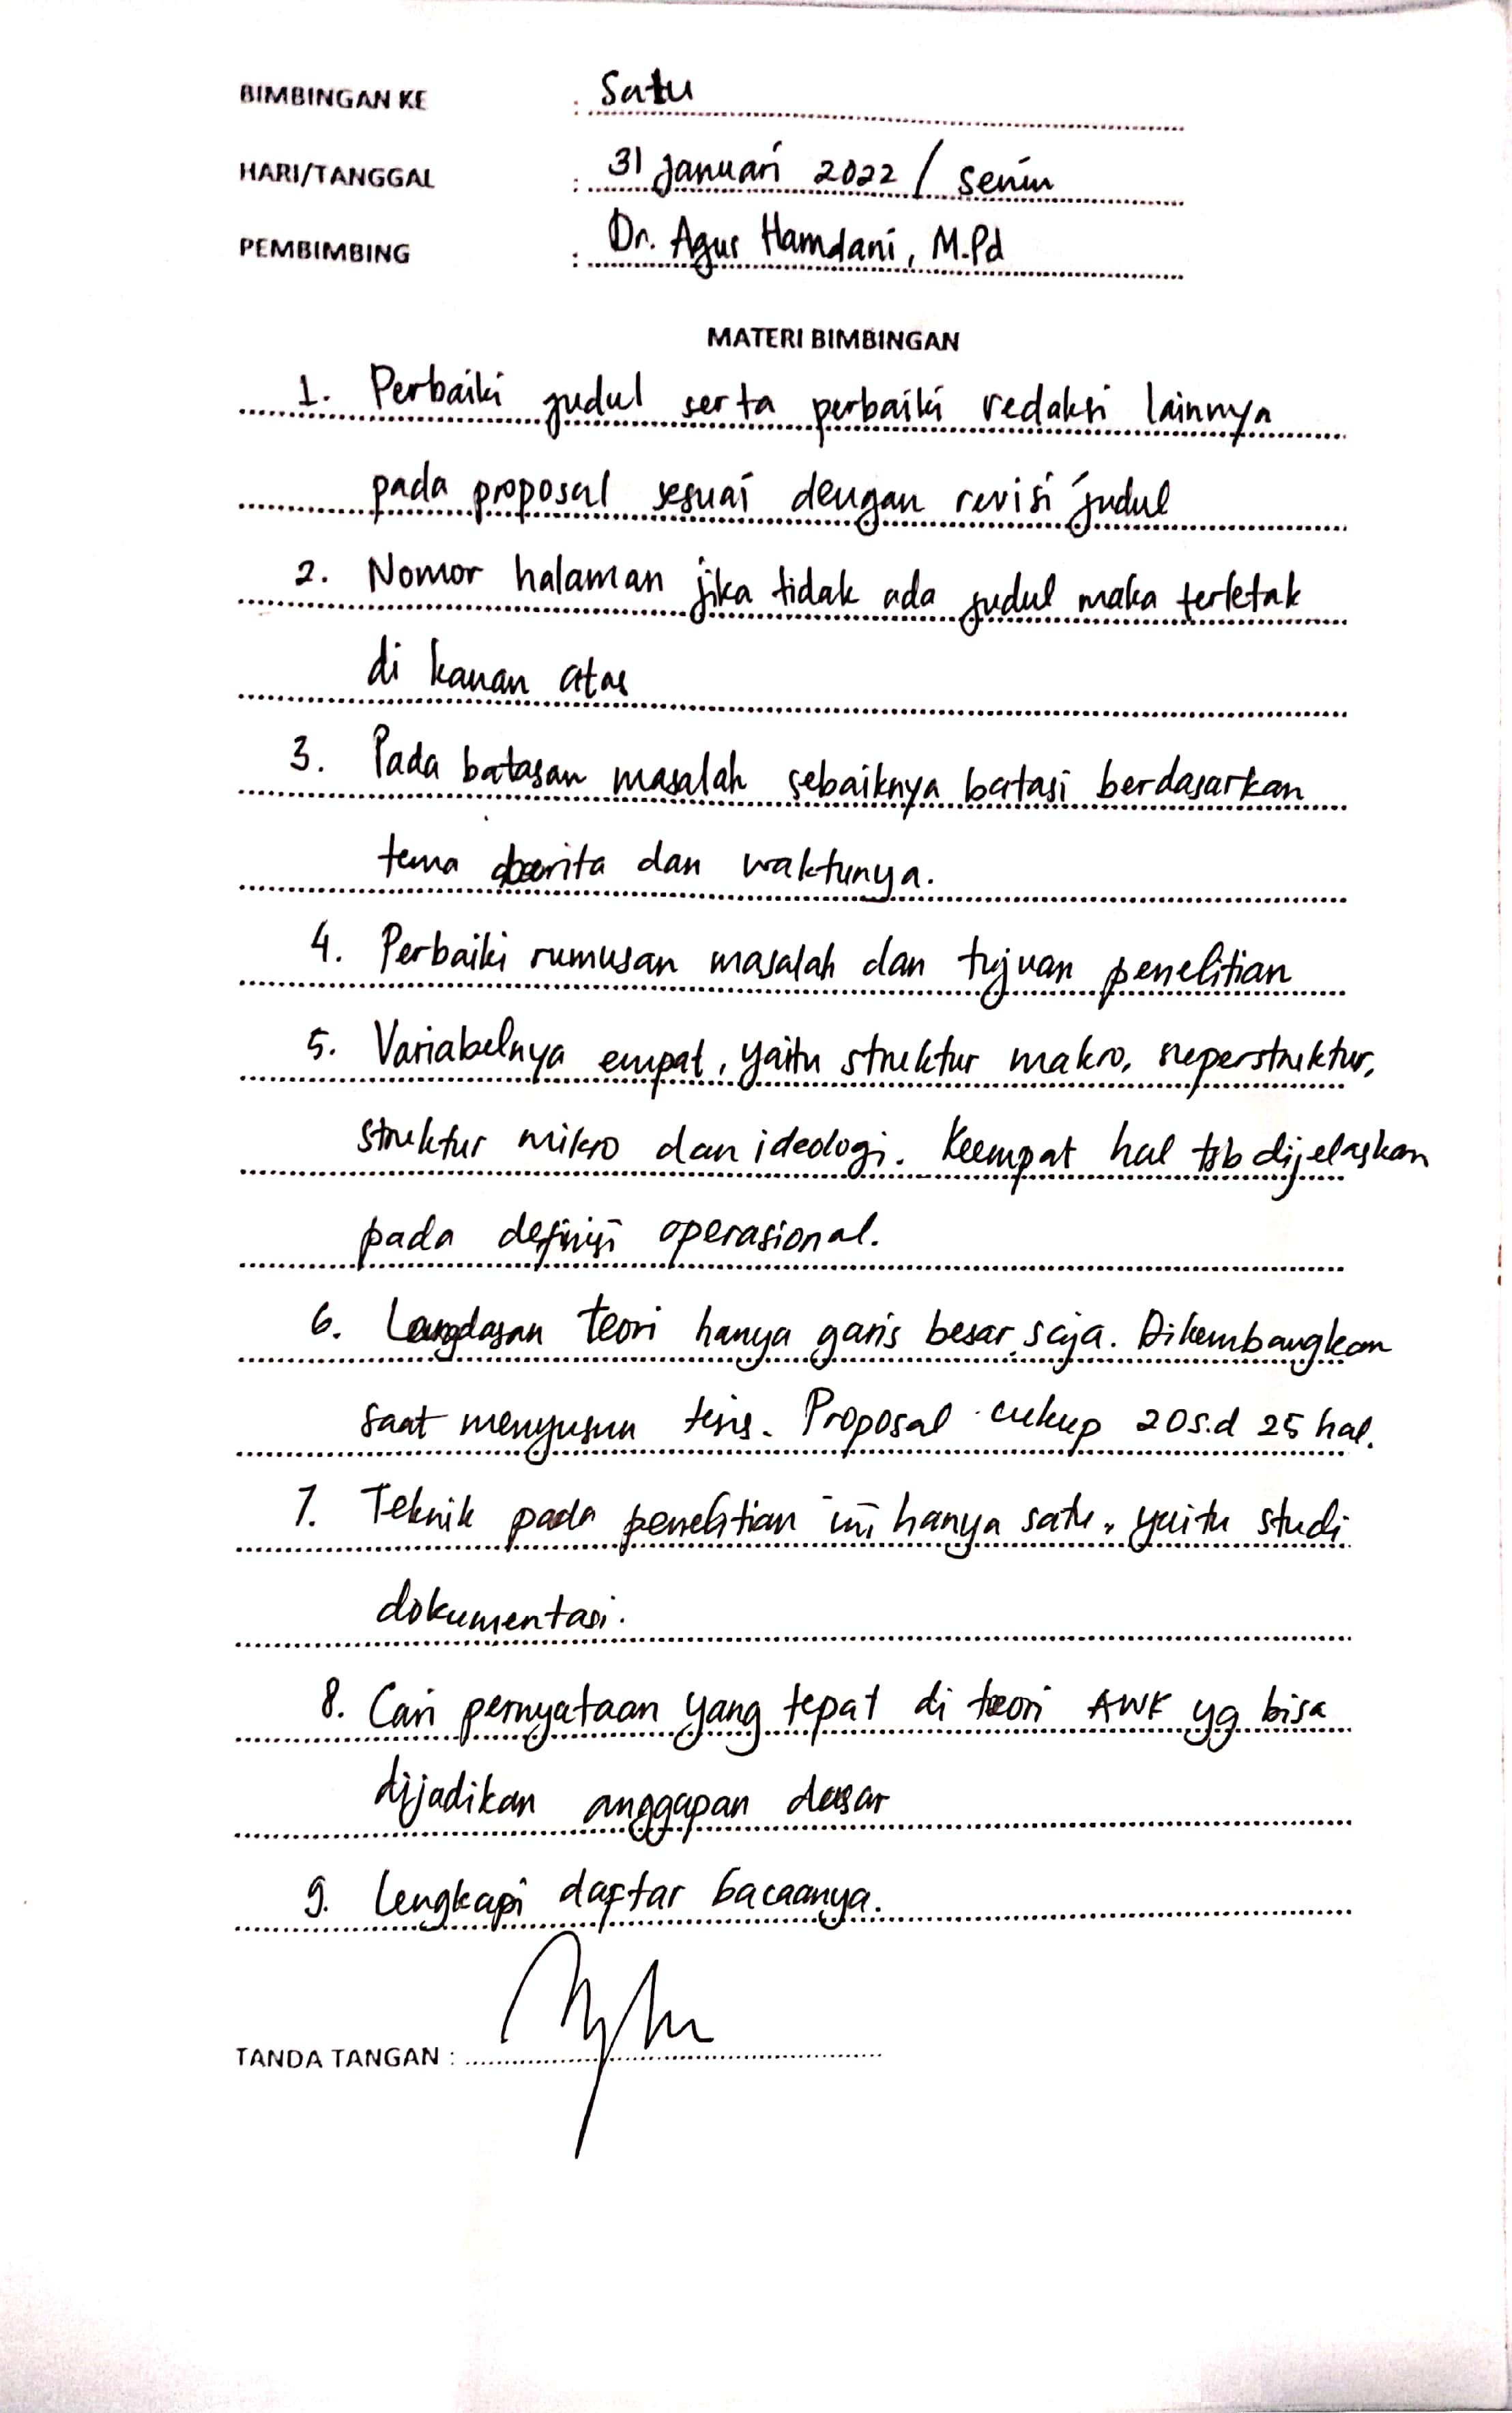 BIMBINGAN KE : Satu
HARI/TANGGAL : 31 Januari 2022 / Senin
PEMBIMBING : Dr. Agus Hamdani, M.Pd
MATERI BIMBINGAN
1. Perbaiki judul serta perbaiki redaksi lainnya
pada proposal sesuai dengan revisi judul
2. Nomor halaman jika tidak ada judul maka terletak
di kanan atas
3. Pada batasan masalah sebaiknya batasi berdasarkan
tema berita dan waktunya.
4. Perbaiki rumusan masalah dan tujuan penelitian
5. Variabelnya empat, yaitu struktur makro, superstruktur,
struktur mikro dan ideologi. Keempat hal tsb dijelaskan
pada definisi operasional.
6. Landasan teori hanya garis besar saja. Dikembangkan
saat menyusun tesis. Proposal cukup 20 s.d 25 hal.
7. Teknik pada penelitian ini hanya satu, yaitu studi
dokumentasi.
8. Cari pernyataan yang tepat di teori AWK yg bisa
dijadikan anggapan dasar
9. Lengkapi daftar bacaanya.
TANDA TANGAN :